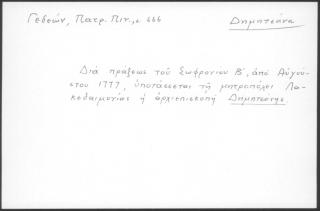 Γεδεών, Πατρ. Πιν., σ 666
Δημητσάνα
Διά πράξεως τοῦ Σωφρονίου Β', ἀπό Αὐγού-
στου 1777, ὑποτάσσεται τῇ μητροπόλει Λα-
κεδαιμονίας ἡ ἀρχιεπισκοπή Δημητσάνης.